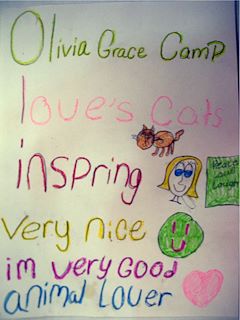 Olivia Grace Camp
love's cats
inspring
Very nice
im very Good
animal Lover